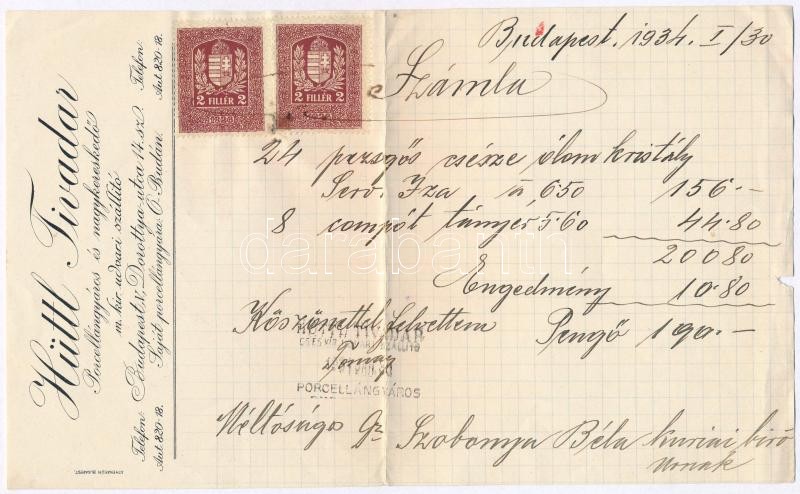 Hüttl Tivadar
Porcellángyáros és nagykereskedő
m. kir. udvari szállító
Budapest, V., Dorottya-utca 14. sz.
Saját porcellángyára: Ó-Budán.
Telefon:
Aut. 820-18.
Telefon:
Aut. 820-18.
2 FILLÉR 2
2 FILLÉR 2
Budapest. 1934. I/30
Számla
24 pezsgős csésze ólom kristály
Serv. Iza á 6.50 156.-
8 compót tányér 5.60 44.80
200 80
Engedmény 10.80
Köszönettel felvettem Pengő 190.-
PORCELLÁNGYÁROS
Méltóságos Szobonya Béla kuriai biró
urnak
darabanth